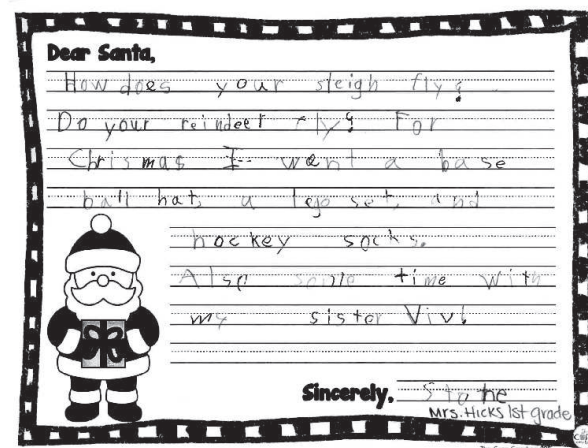 Dear Santa,
How does your sleigh fly?
Do your reindeer fly? For
Chrismas I want a base
ball hat, a lego set, and
hockey socks.
Also some time with
my sister Viv!
Sincerely, Stone
Mrs. Hicks 1st grade